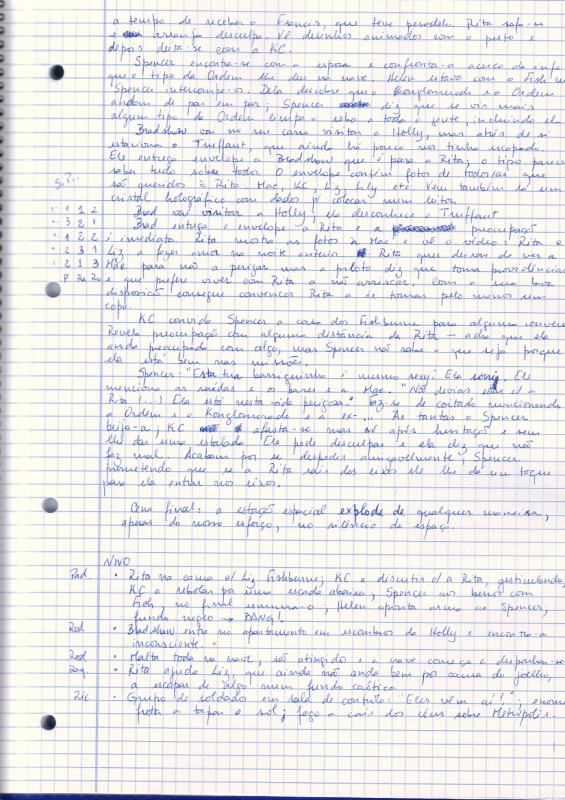 a tempo de receber o Francis, que teve pesadelo. Rita safa-se
e arranja desculpa. Vê desenhos animados com o puto e
depois deita-se com a KC.
Spencer encontra-se com a esposa e confronta-a acerca da info
que o tipo da Ordem lhe deu na nave. Helen estava com o Fish e
Spencer interrompe-os. Dela descobre que o Konglomerado e a Ordem
andam de par em par, Spencer diz que se vir mais
algum tipo da Ordem limpa o sebo a toda a gente, incluindo ela
Bradshaw vai no seu carro visitar a Holly, mas atrás de si
estaciona o Truffaut, que ainda há pouco nos tinha escapado.
Ele entrega envelope a Bradshaw que é para a Rita; o tipo parece
saber tudo sobre todos. O envelope contém fotos de todos os que
são queridos à Rita: Mac, KC, Liz, Lily etc. Vem também lá um
cristal holográfico com dados p/ colocar num leitor.
S.P..
1 1 2 Brad vai visitar a Holly, ele desconhece o Truffaut
3 2 1 Brad entrega o envelope à Rita e a preocupação
1 2 2 é imediata. Rita mostra as fotos à Mac e vê o vídeo: Rita e
2 3 1 Liz a fazer amor na noite anterior. Rita quer deixar de ver a
2 1 3 Mac para não a perigar mas a piloto diz que toma providências
P Ra Ro e que prefere viver com Rita a não arriscar. Com a sua boa
disposição consegue convencer Rita a se tomar pelo menos um
copo.
KC convida Spencer a casa dos Fishburne para alguma conversa
Revela preocupação com alguma distância da Rita - acha que ela
anda preocupada com algo, mas Spencer não sabe o que seja porque
ela está bem nas missões.
Spencer: "Esta tua barriguinha é mesmo sexy." Ela sorri. Ele
menciona as saídas e os bares e a Mac. "Não devias estar c/ a
Rita (...) Ela está nesta vida perigosa." Faz-se de coitado mencionando
a Ordem e o Konglomerado e a ex-... Às tantas o Spencer
beija-a, KC afasta-se mas só após hesitação e sem
lhe dar uma estalada. Ele pede desculpas e ela diz que não
faz mal. Acabam por se despedir amigavelmente, Spencer
prometendo que se a Rita sair dos eixos ele lhe dá um toque
para ela entrar nos eixos.
Cena final: a estação espacial explode de qualquer maneira,
apesar do nosso esforço, no silêncio do espaço.
NWO
Pad. • Rita na cama c/ Liz Fishburne; KC a discutir c/ a Rita, gesticulando,
KC a rebolar por uma escada abaixo, Spencer aos berros com
Fish no final esmurra-o, Helen aponta arma ao Spencer,
fundo negro → BANG!
Rod • Bradshaw entra no apartamento em escombros da Holly e encontra-a
inconsciente.
Rod • Malta toda na nave, são atingidos e a nave começa a despenhar-se
Raq • Rita ajuda Liz, que ainda não anda bem por causa do joelho,
a escapar de algo num fundo caótico.
Ric • Grupo de soldados em sala de controlo: "Eles vêm aí!", enorme
frota a tapar o sol; fogo a cair dos céus sobre Metropolis.